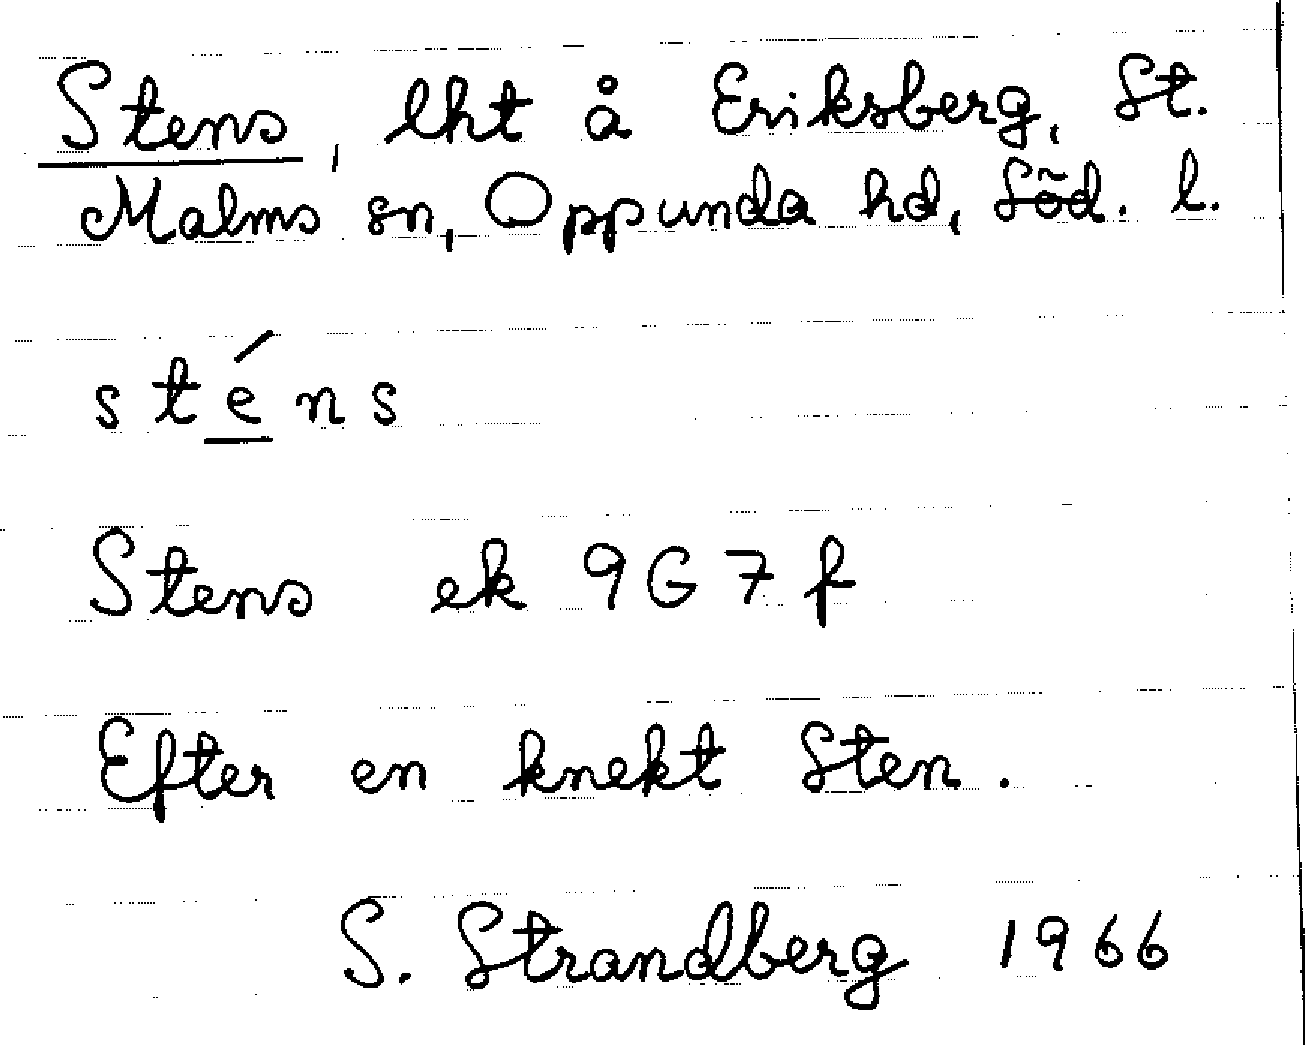 Stens, lht å Eriksberg, St.
Malms sn, Oppunda hd, Söd. l.
sténs
Stens ek 9G7f
Efter en knekt Sten.
S. Strandberg 1966